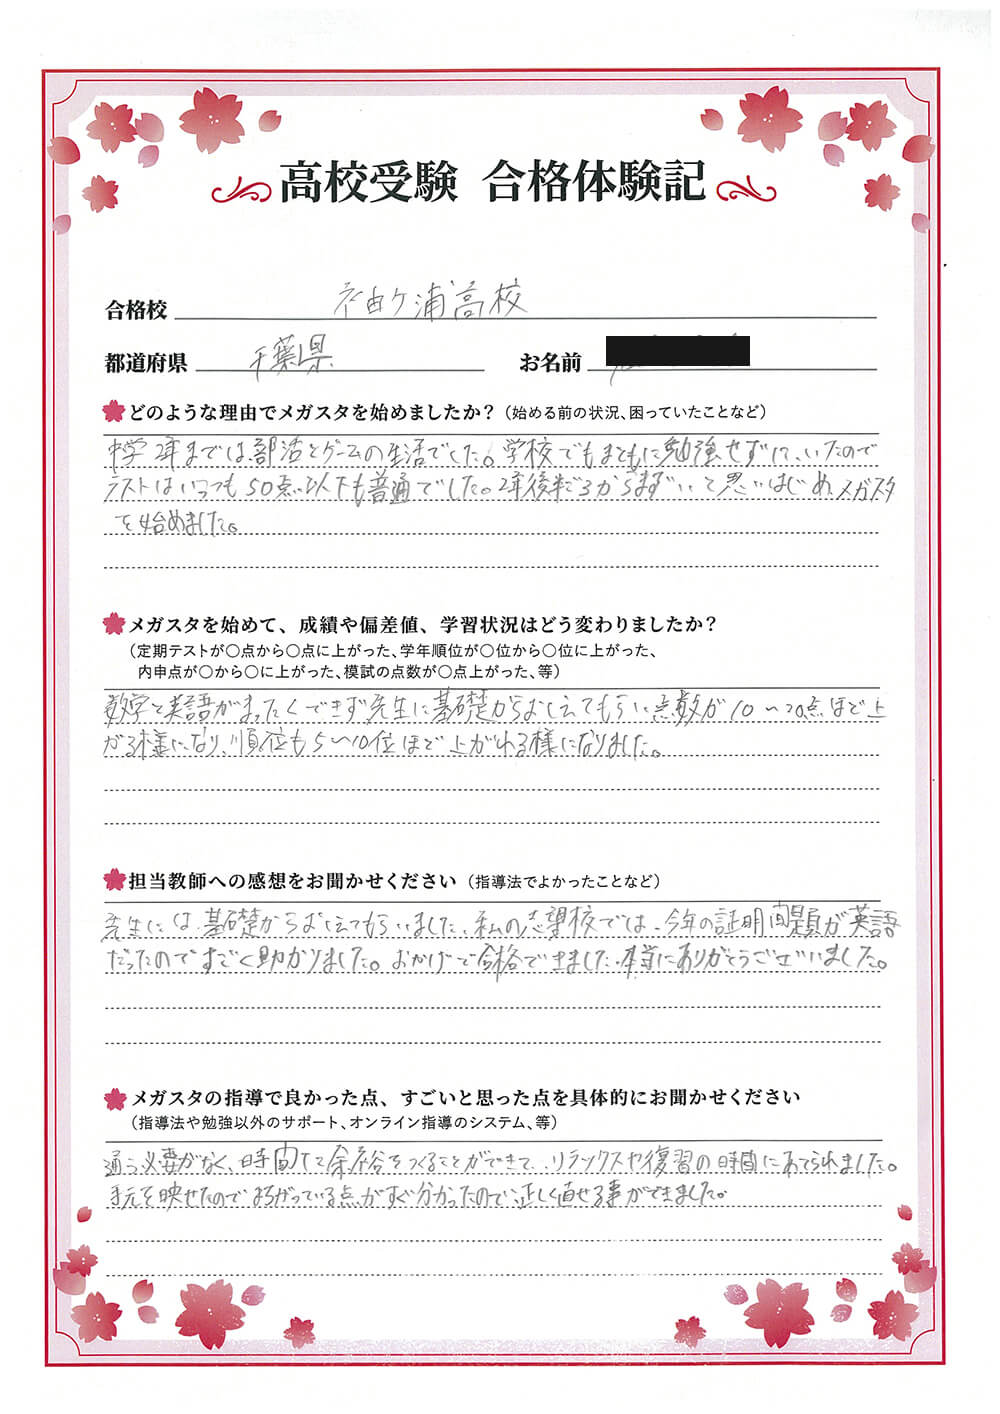 高校受験 合格体験記
合格校 袖ケ浦高校
都道府県 千葉県 お名前
どのような理由でメガスタを始めましたか？（始める前の状況、困っていたことなど）
中学2年までは部活とゲームの生活でした。学校でもまともに勉強せずに、いたので
テストはいつも50点以下も普通でした。2年後半ごろからまずいと思いはじめメガスタ
を始めました。
メガスタを始めて、成績や偏差値、学習状況はどう変わりましたか？
（定期テストが〇点から〇点に上がった、学年順位が〇位から〇位に上がった、
内申点が〇から〇に上がった、模試の点数が〇点上がった、等）
数学と英語がまったくできず先生に基礎からおしえてもらい点数が10〜20点ほど上
がる様になり、順位も5〜10位ほど上がれる様になりました。
担当教師への感想をお聞かせください（指導法でよかったことなど）
先生には、基礎からおしえてもらいました、私の志望校では、今年の証明問題が英語
だったのですごく助かりました。おかげで合格できました、本当にありがとうございました。
メガスタの指導で良かった点、すごいと思った点を具体的にお聞かせください
（指導法や勉強以外のサポート、オンライン指導のシステム、等）
通う必要がなく、時間に余裕をつくることができて、リラックスや復習の時間にあてられました。
手元を映せたのでまちがっている点がすぐ分かったので正しく直せる事ができました。